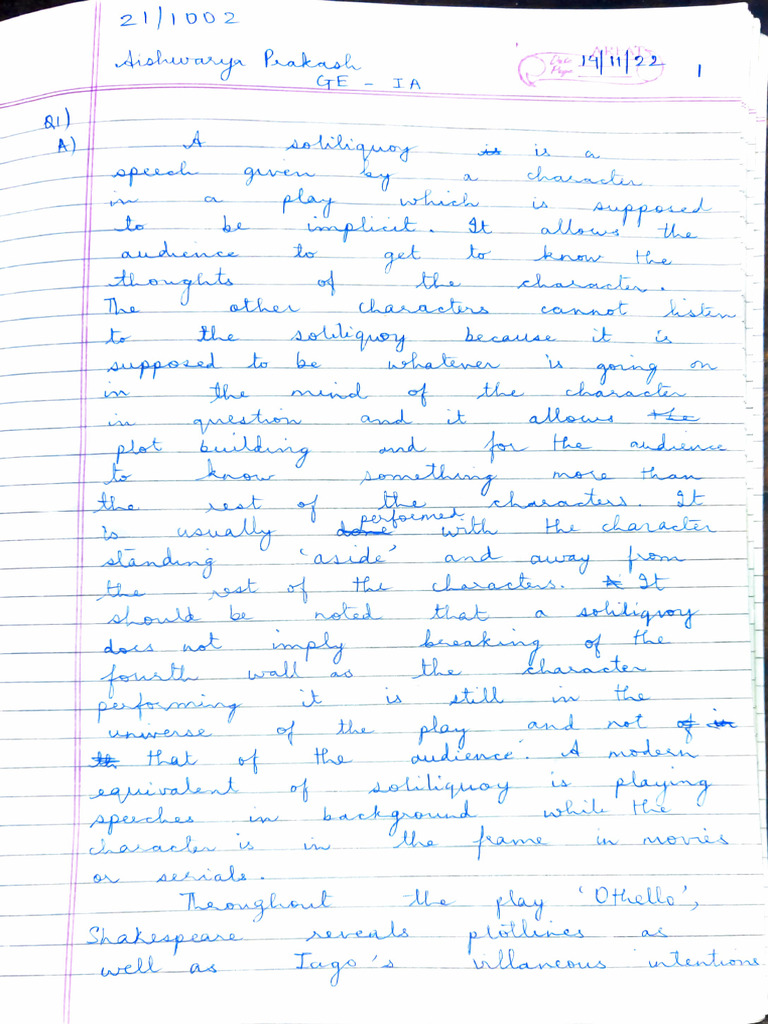 21/1002
Aishwarya Prakash
GE - IA
Date
Page
14/11/22
1
Q1)
A) A soliliquoy is is a
speech given by a character
in a play which is supposed
to be implicit. It allows the
audience to get to know the
thoughts of the character.
The other characters cannot listen
to the soliliquoy because it is
supposed to be whatever is going on
in the mind of the character
in question and it allows the
plot building and for the audience
to know something more than
the rest of the characters. It
is usually done performed with the character
standing 'aside' and away from
the rest of the characters. It
should be noted that a soliliquoy
does not imply breaking of the
fourth wall as the character
performing it is still in the
universe of the play and not of in
th that of the audience. A modern
equivalent of soliliquoy is playing
speeches in background while the
character is in the frame in movies
or serials.
Theroughout the play 'Othello',
Shakespeare reveals plotlines as
well as Iago's villaneous intentions